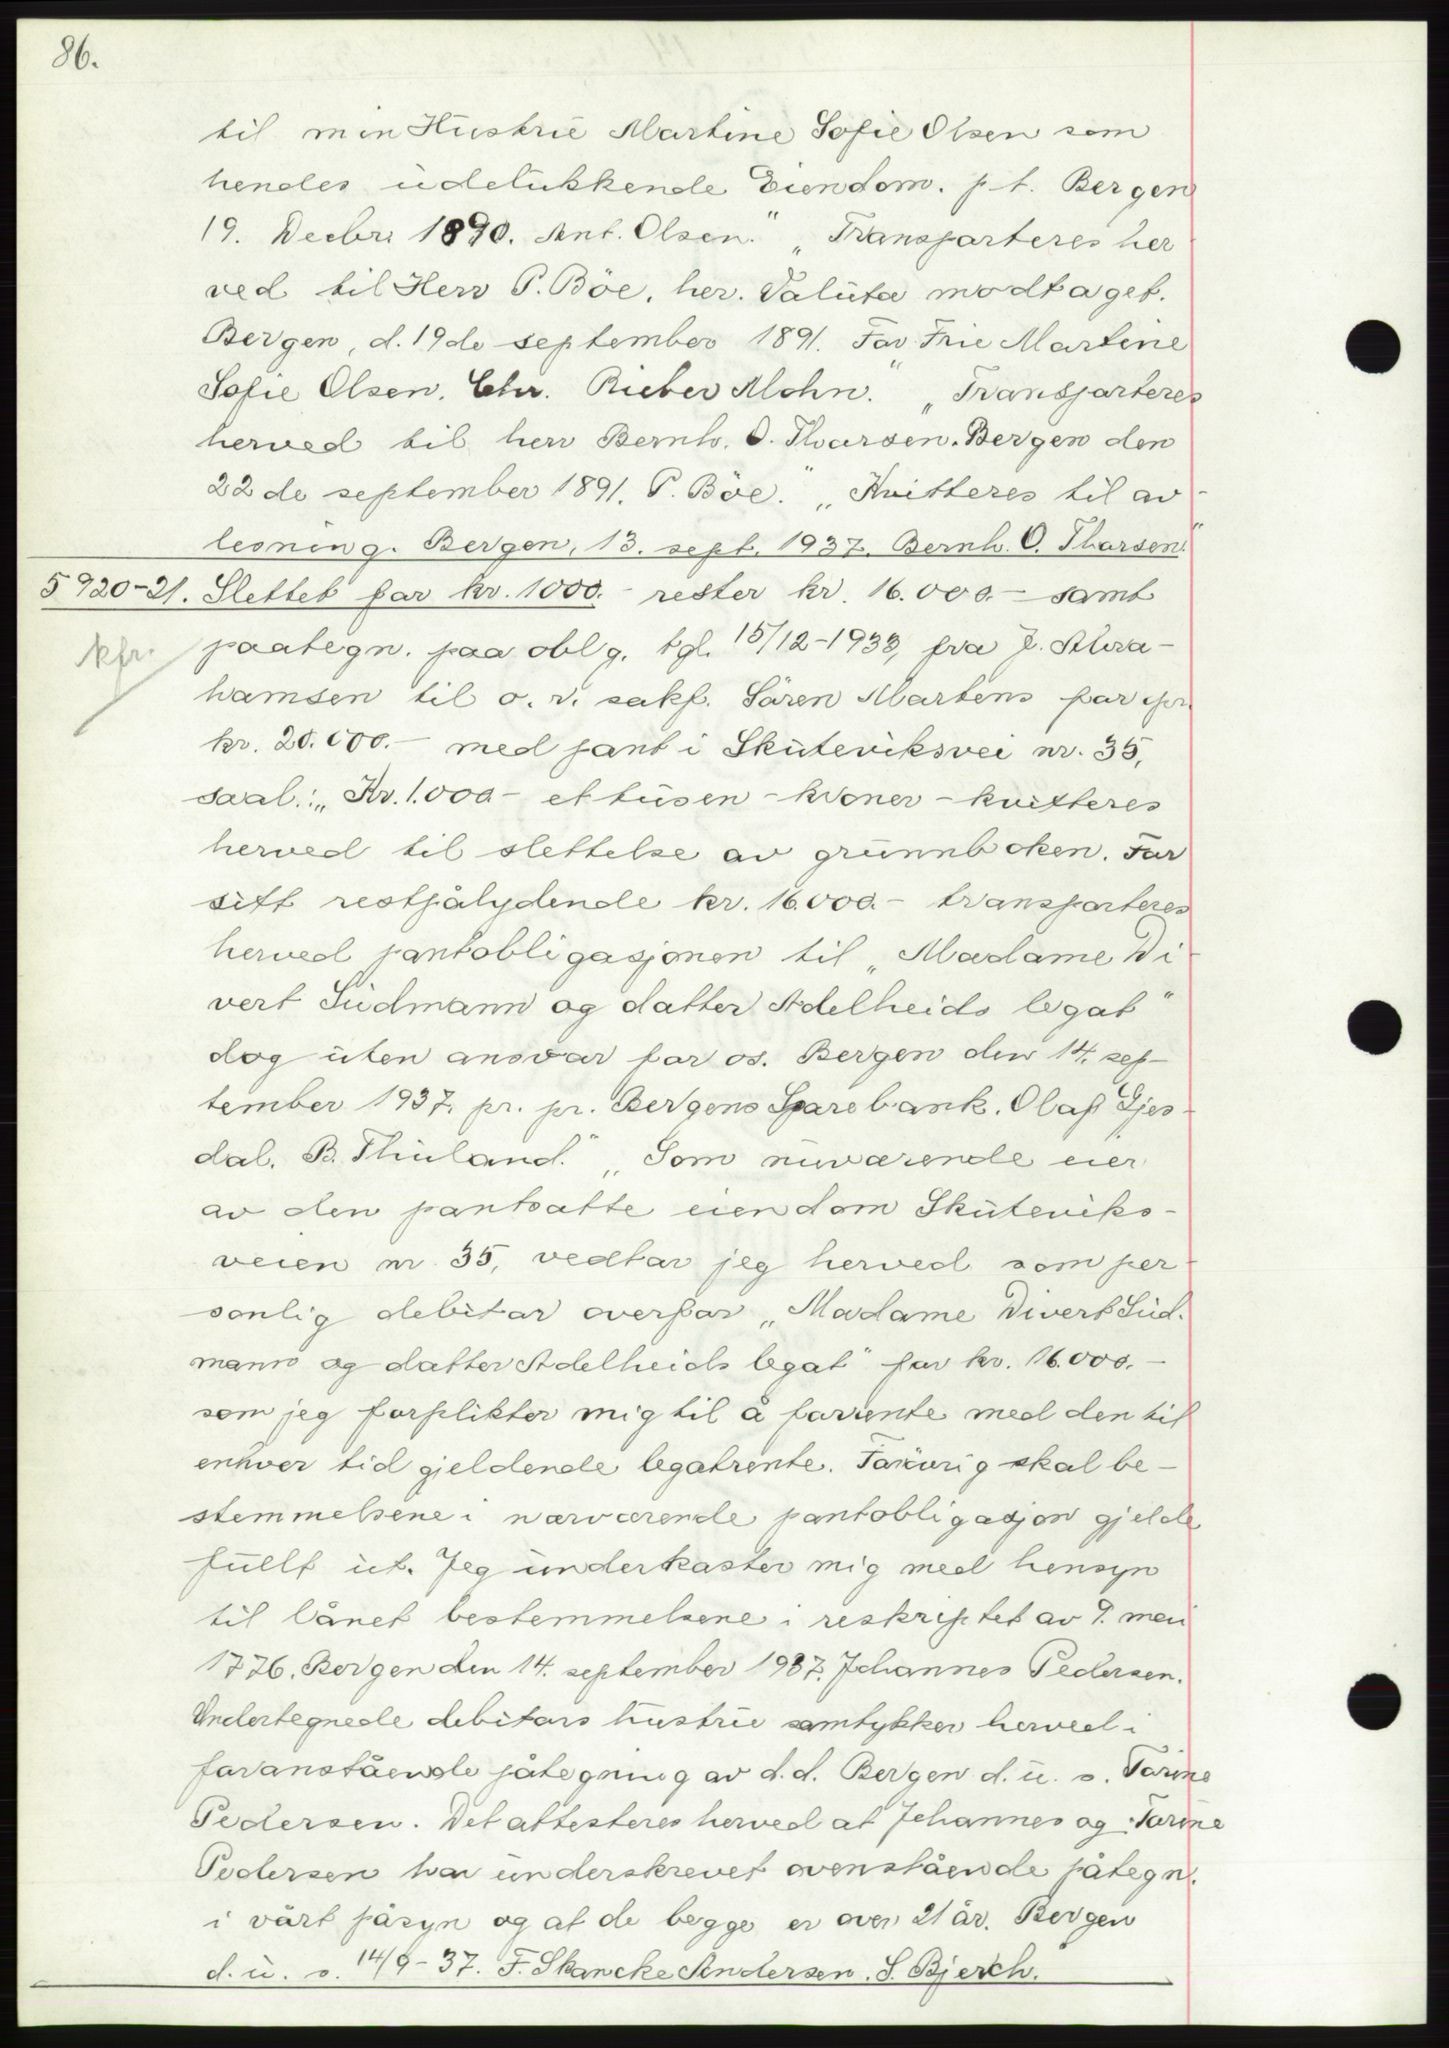 86.
til min Hustru Martine Sofie Olsen som
hendes udelukkende Eiendom. p t. Bergen
19. Decbr. 1890. Ant. Olsen." „Transporteres her
ved til Herr P. Böe, her. Valuta modtaget.
Bergen, d. 19de september 1891. For Frue Martine
Sofie Olsen. Chr. Rieber Mohn." „Transporteres
herved til herr Bernh. O. Thorsen. Bergen den
22de september 1891. P. Böe." „Kvitteres til av-
lesning. Bergen, 13. sept. 1937. Bernh. O. Thorsen."
5920-21. Slettet for kr. 1000.- rester kr. 16.000.- samt
kfr. paategn. paa oblg. tgl. 15/12-1933, fra J. Abra-
hamsen til o. r. sakf. Sören Martens for opr.
kr. 20.000.- med pant i Skuteviksvei nr. 35,
saal.: „Kr. 1.000- ettusen - kroner - kvitteres
herved til slettelse av grunnboken. For
sitt restpålydende kr. 16.000.- transporteres
herved pantobligasjonen til „Madame Di-
vert Südmann og datter Adelheids legat"
dog uten ansvar for os. Bergen den 14. sep-
tember 1937. pr. pr. Bergens Sparebank. Olaf Gjes-
dal. B. Thuland." „Som nuværende eier
av den pantsatte eiendom Skuteviks-
veien nr. 35, vedtar jeg herved som per-
sonlig debitor overfor „Madame Divert Süd-
mann og datter Adelheids legat" for kr. 16.000.-
som jeg forplikter mig til å forrente med den til
enhver tid gjeldende legatrente. Forövrig skal be-
stemmelsene i nærværende pantobligasjon gjelde
fullt ut. Jeg underkaster mig med hensyn
til lånet bestemmelsene i reskriptet av 9. mai
1776. Bergen den 14. september 1937. Johannes Pedersen.
Undertegnede debitors hustru samtykker herved i
foranstående påtegning av d.d. Bergen d. u. s. Torine
Pedersen. Det attesteres herved at Johannes og Torine
Pedersen har underskrevet ovenstående påtegn.
i vårt påsyn og at de begge er over 21 år. Bergen
d. u. s. 14/9-37. F. Skancke Andersen. S. Bjerch.